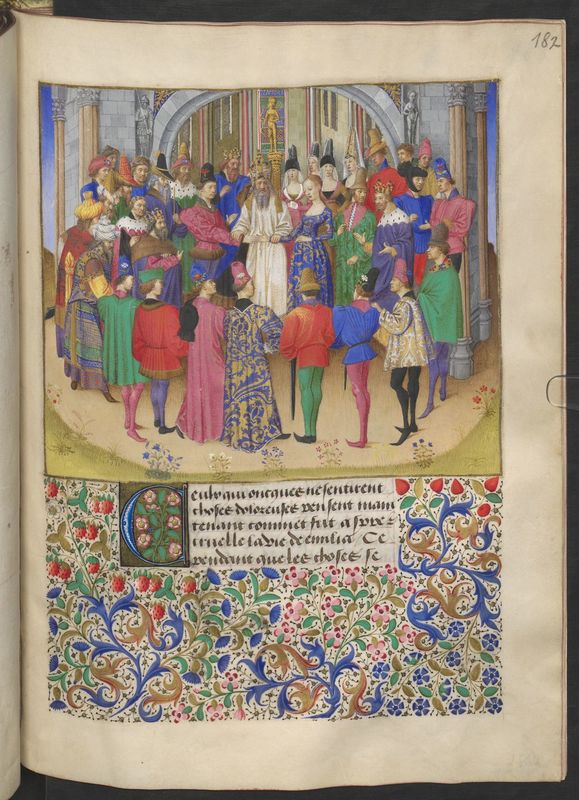 182
Ceulx qui oncques ne sentirent
choses doloreuses pensent main
tenant comment fut aspre et
cruelle la vie de emilia Ce
pendant que les choses se